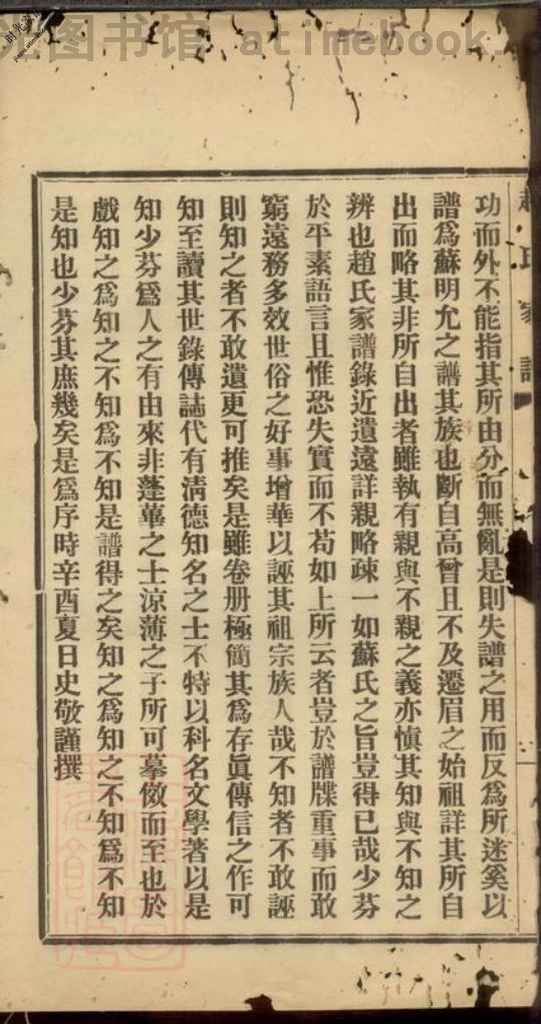 图书馆 atimebook.
趙氏家譜
功而外不能指其所由分而無亂是則失譜之用而反爲所迷奚以
譜爲蘇明允之譜其族也斷自高曾且不及遷眉之始祖詳其所自
出而略其非所自出者雖執有親與不親之義亦愼其知與不知之
辨也趙氏家譜錄近遺遠詳親略疎一如蘇氏之旨豈得已哉少芬
於平素語言且惟恐失實而不苟如上所云者豈於譜牒重事而敢
窮遠務多效世俗之好事增華以誣其祖宗族人哉不知者不敢誣
則知之者不敢遺更可推矣是雖卷册極簡其爲存眞傳信之作可
知至讀其世錄傳誌代有淸德知名之士不特以科名文學著以是
知少芬爲人之有由來非蓬蓽之士涼薄之子所可摹傚而至也於
戲知之爲知之不知爲不知是譜得之矣知之爲知之不知爲不知
是知也少芬其庶幾矣是爲序時辛酉夏日史敬謹撰